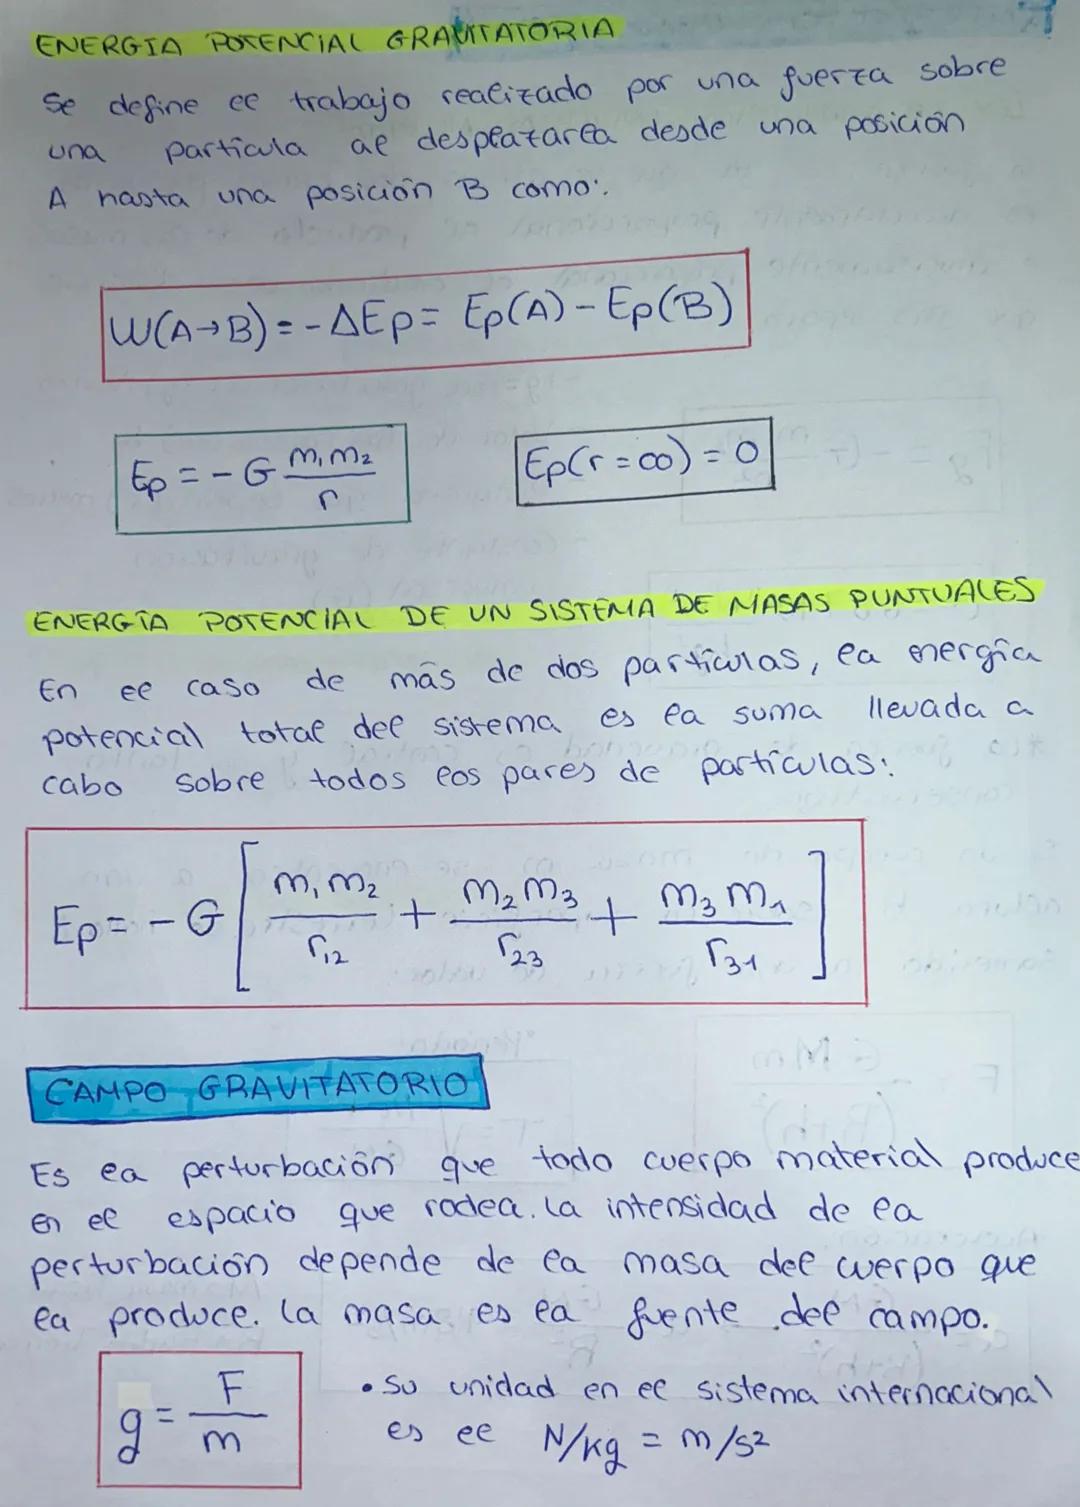 ENERGIA POTENCIAL GRAVITATORIA
Se define el trabajo realizado por una fuerza sobre
una partícula al desplazarla desde una posición
A hasta una posición B como:
W(A→B) = -ΔEp = Ep(A) - Ep(B)
Ep = -G m₁m₂/r
Ep(r = ∞) = 0
ENERGÍA POTENCIAL DE UN SISTEMA DE MASAS PUNTUALES
En el caso de más de dos partículas, la energía
potencial total del sistema es la suma llevada a
cabo sobre todos los pares de partículas:
Ep = -G [m₁m₂/r₁₂ + m₂m₃/r₂₃ + m₃m₁/r₃₁]
CAMPO GRAVITATORIO
Es la perturbación que todo cuerpo material produce
en el espacio que rodea. La intensidad de la
perturbación depende de la masa del cuerpo que
la produce. La masa es la fuente del campo.
g = F/m
• Su unidad en el sistema internacional
es el N/kg = m/s²